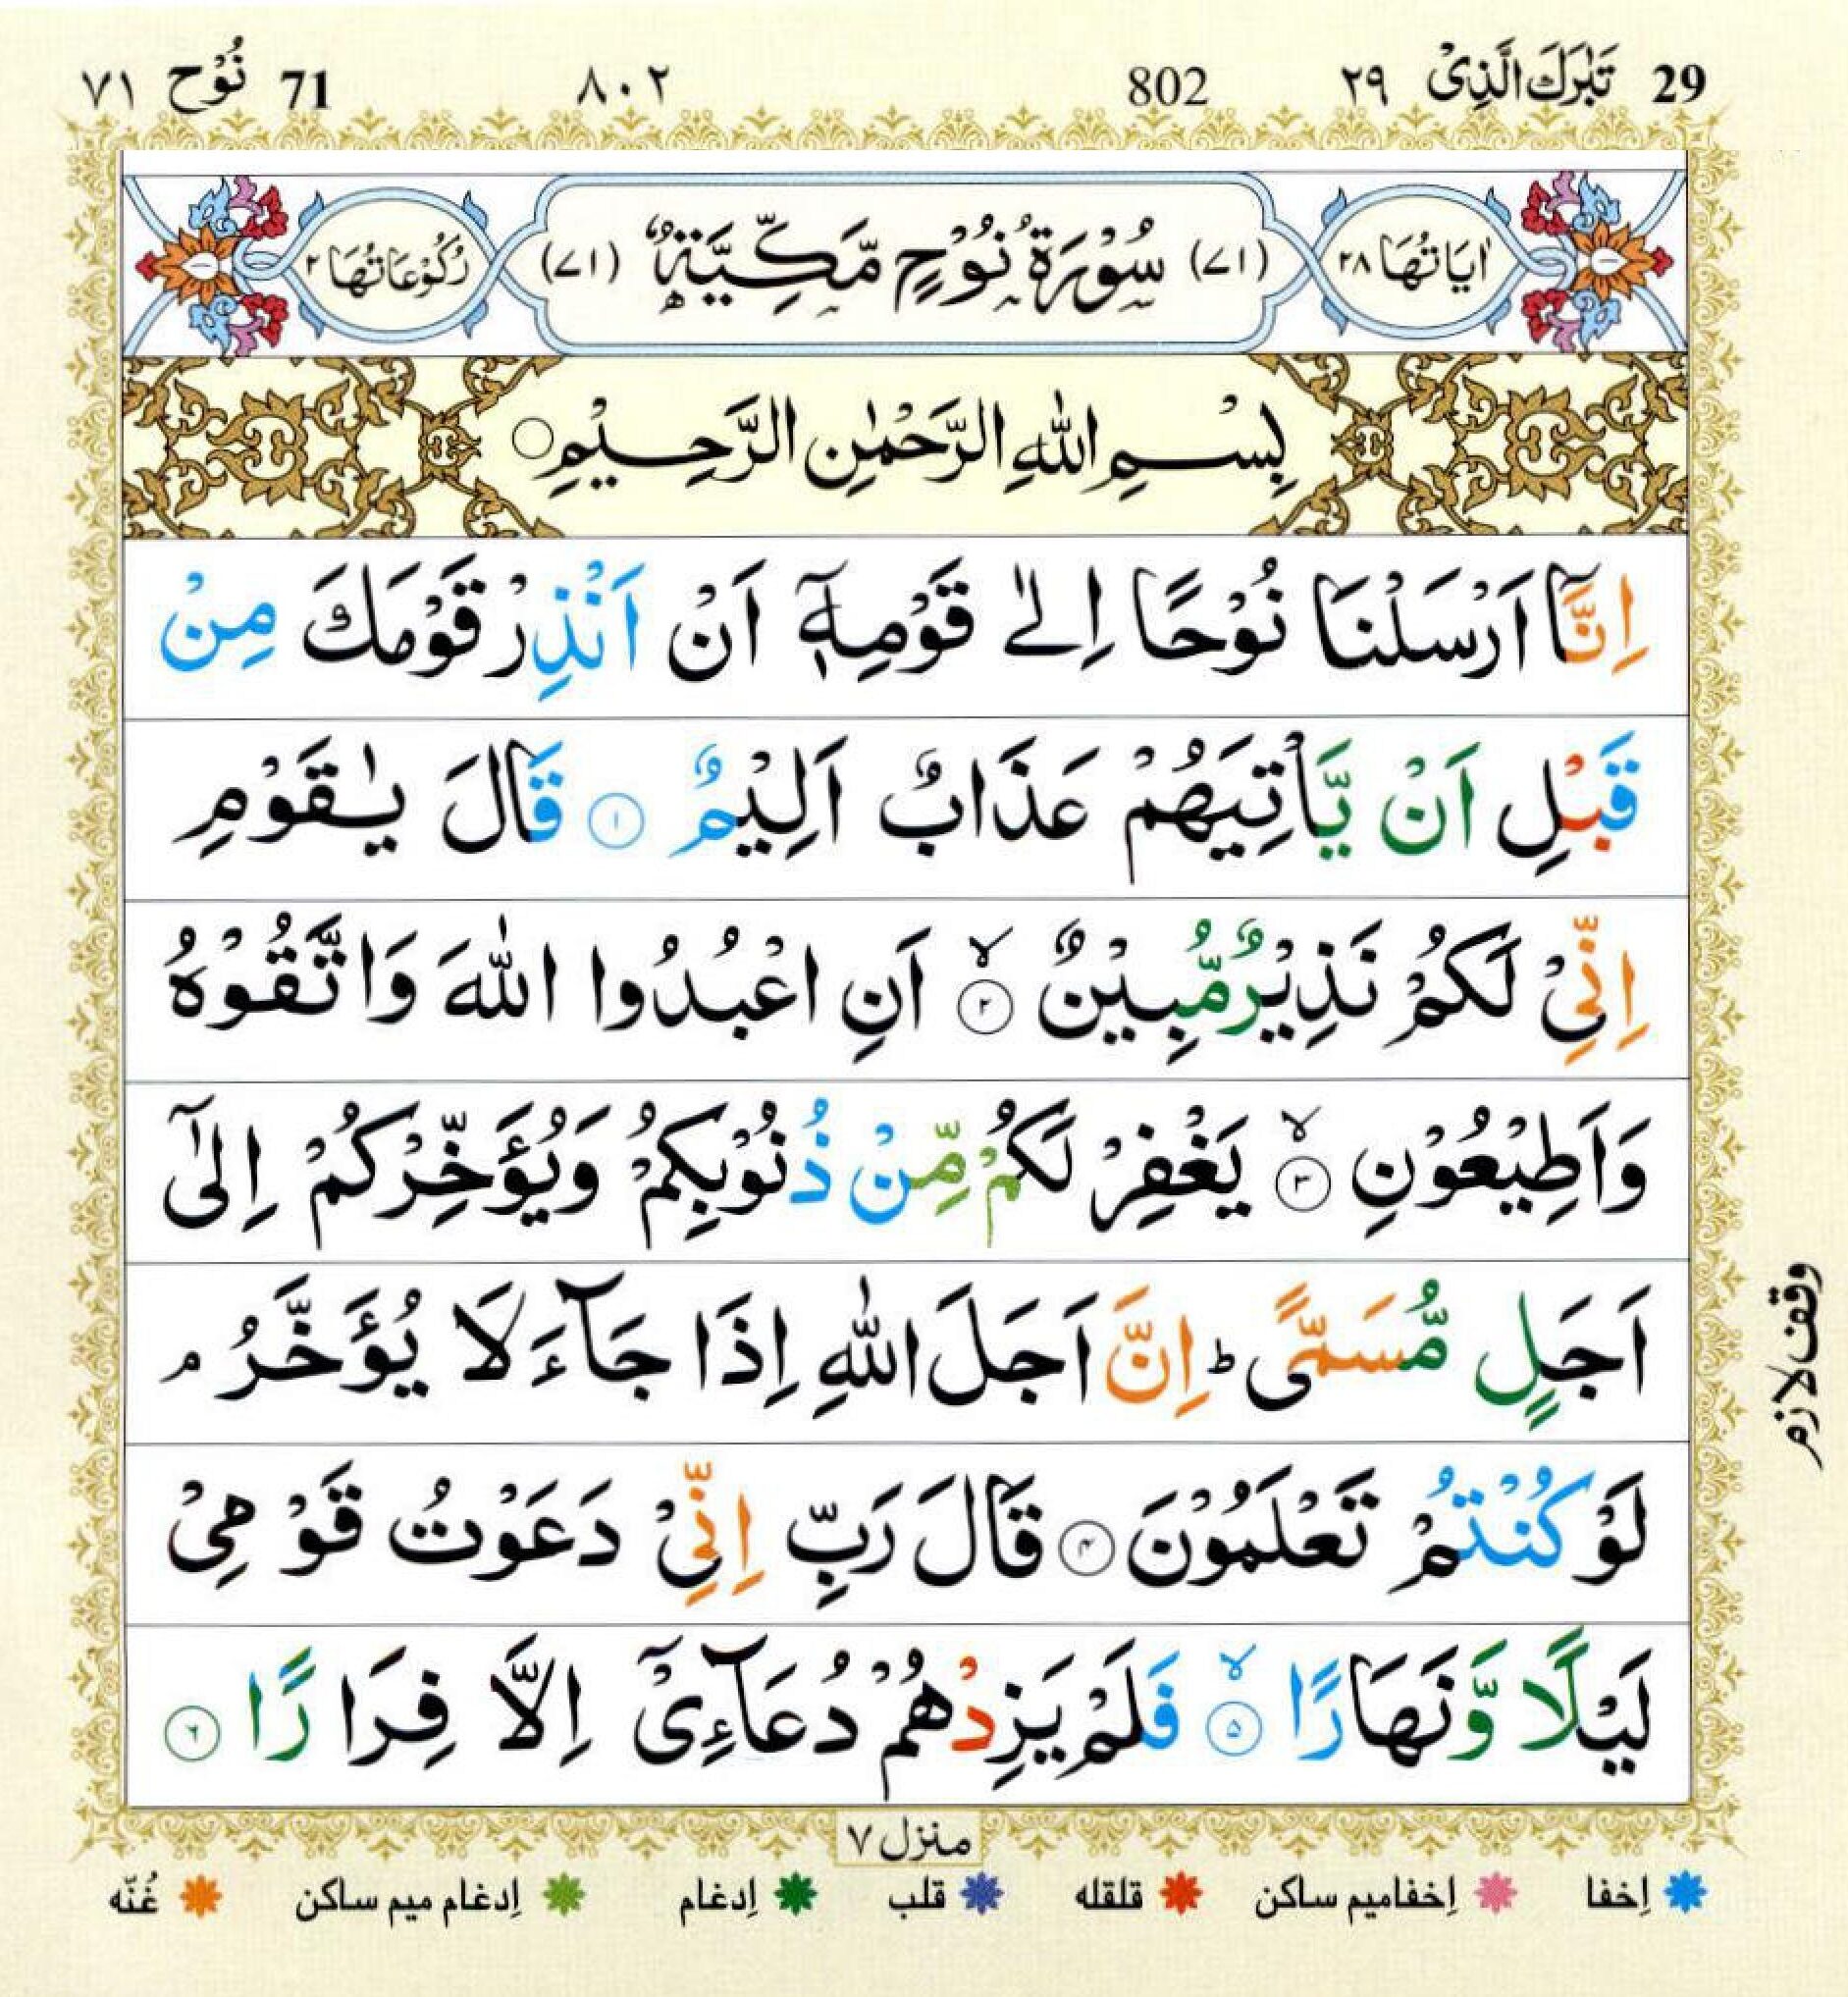 29 تَبٰرَكَ الَّذِیْ ٢٩ 802 ٨٠٢ 71 نُوْح ٧١
اٰيَاتُهَا ٢٨ (٧١) سُوْرَةُ نُوْحٍ مَّكِّيَّةٌ (٧١) رُكُوْعَاتُهَا ٢
بِسْمِ اللّٰهِ الرَّحْمٰنِ الرَّحِيْمِ
اِنَّاۤ اَرْسَلْنَا نُوْحًا اِلٰى قَوْمِهٖۤ اَنْ اَنْذِرْ قَوْمَكَ مِنْ
قَبْلِ اَنْ يَّاْتِيَهُمْ عَذَابٌ اَلِيْمٌ ١ قَالَ يٰقَوْمِ
اِنِّىْ لَكُمْ نَذِيْرٌ مُّبِيْنٌ ۙ ٢ اَنِ اعْبُدُوا اللّٰهَ وَاتَّقُوْهُ
وَاَطِيْعُوْنِ ۙ ٣ يَغْفِرْ لَكُمْ مِّنْ ذُنُوْبِكُمْ وَيُؤَخِّرْكُمْ اِلٰٓى
اَجَلٍ مُّسَمًّى ؕ اِنَّ اَجَلَ اللّٰهِ اِذَا جَآءَ لَا يُؤَخَّرُ ۘ
لَوْ كُنْتُمْ تَعْلَمُوْنَ ٤ قَالَ رَبِّ اِنِّىْ دَعَوْتُ قَوْمِىْ
لَيْلًا وَّنَهَارًا ۙ ٥ فَلَمْ يَزِدْهُمْ دُعَآءِىْۤ اِلَّا فِرَارًا ٦
وقف لازم
منزل ٧
اِخفا اِخفامیم ساکن قلقله قلب اِدغام اِدغام میم ساکن غُنّه